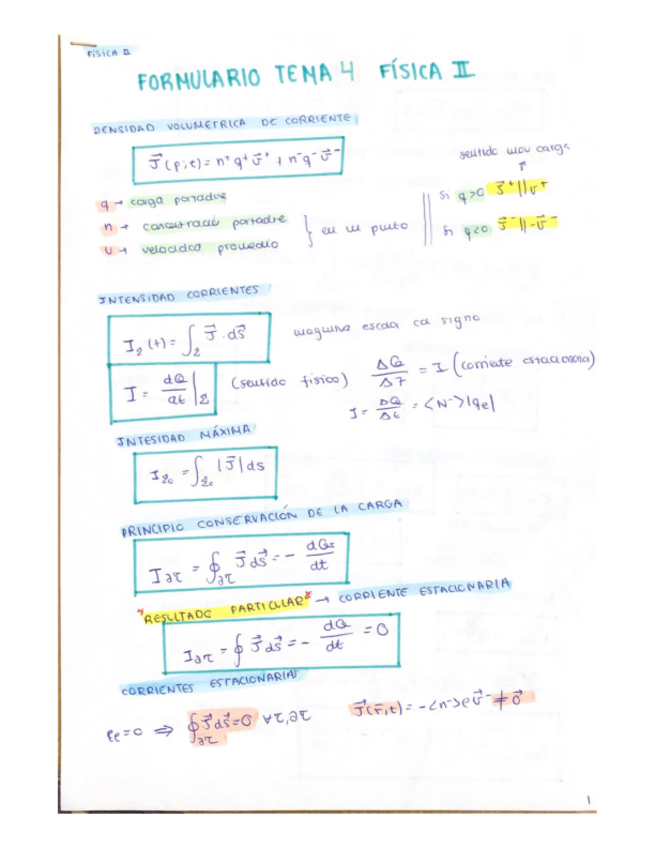 FÍSICA II
FORMULARIO TEMA 4 FÍSICA II
DENSIDAD VOLUMÉTRICA DE CORRIENTE
J⃗(p;t) = n⁺ q⁺ v⃗⁺ + n⁻ q⁻ v⃗⁻
sentido mov carga
q → carga portadore
n → concentració portadore
v → velocidad promedio
} en un punto
Si q>0 J⃗⁺ || v⁺
Si q<0 J⃗⁻ || -v⃗⁻
INTENSIDAD CORRIENTES
I_Σ(t) = ∫_Σ J⃗ · dS⃗
magnitud escalar con signo
I = dQ/dt |_Σ (sentido físico)
ΔQ/ΔT = I (corriente estacionaria)
I = ΔQ/Δt = <N⁻>|qe|
INTESIDAD MÁXIMA
I_Σ₀ = ∫_Σ₀ |J⃗| ds
PRINCIPIO CONSERVACIÓN DE LA CARGA
I∂τ = ∮_∂τ J⃗ dS⃗ = - dQτ/dt
*RESULTADO PARTICULAR* → CORRIENTE ESTACIONARIA
I∂τ = ∮ J⃗ dS⃗ = - dQ/dt = 0
CORRIENTES ESTACIONARIAS
ρe = 0 ⇒ ∮_∂τ J⃗ dS⃗ = 0 ∀τ,∂τ
J⃗(r⃗,t) = -<n⁻>e v⃗⁻ ≠ 0⃗
1